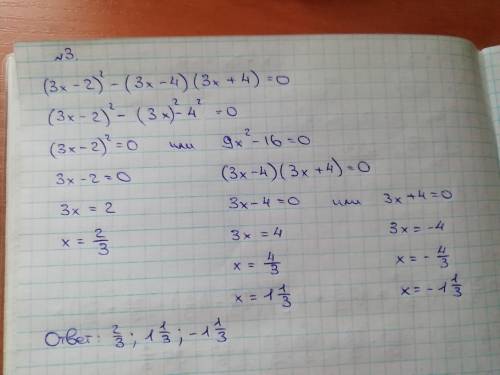 №3.
(3x-2)² - (3x-4)(3x+4)=0
(3x-2)² - (3x)²-4² =0
(3x-2)²=0 или 9x²-16=0
3x-2=0 (3x-4)(3x+4)=0
3x=2 3x-4=0 или 3x+4=0
x=2/3 3x=4 3x=-4
x=4/3 x=-4/3
x=1 1/3 x=-1 1/3
Ответ: 2/3; 1 1/3; -1 1/3